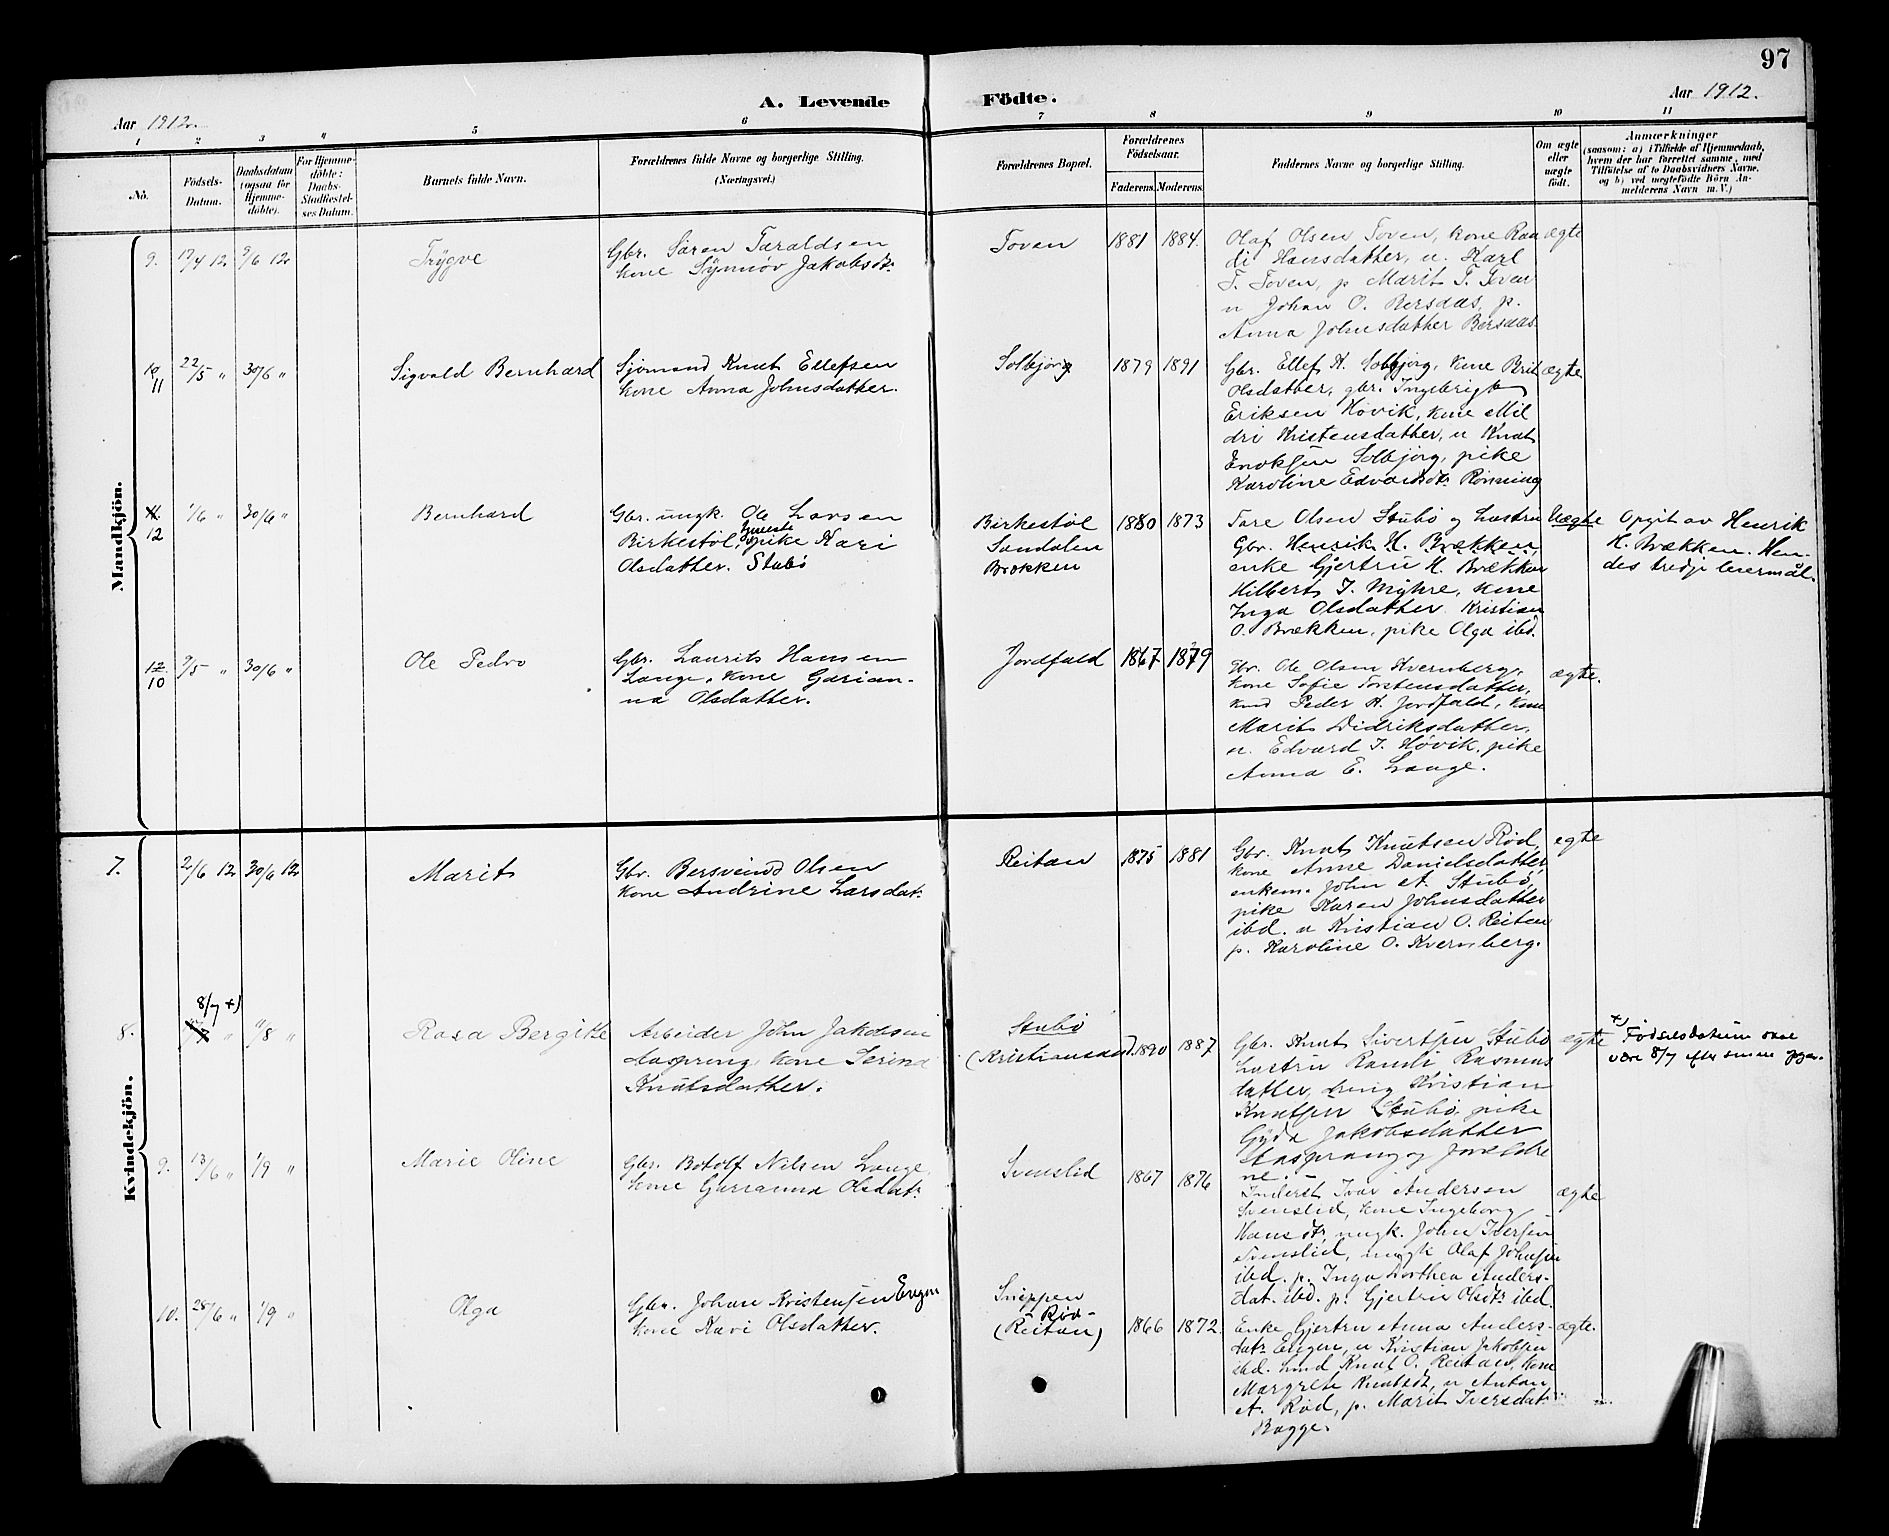 97
A. Levende Födte.
Aar 1912.
Aar 1912.
1 2 3 4 5 6 7 8 9 10 11
No.
Födsels-
Datum.
Daabsdatum
(ogsaa for
Hjemme-
döbte).
For Hjemme-
döbte:
Daabs-
Stadfæstel-
ses Datum.
Barnets fulde Navn.
Forældrenes fulde Navne og borgerlige Stilling.
(Næringsvei.)
Forældrenes Bopæl.
Forældrenes
Födselsaar.
Faderens. Moderens.
Faddernes Navne og borgerlige Stilling.
Om ægte
eller
uægte
födt.
Anmærkninger
(saasom: a) i Tilfælde af Hjemmedaab,
hvem der har forrettet samme, med
Tilföielse af to Daabsvidners Navne,
og b) ved uægtefödte Börn An-
melderens Navn m. V.)
Mandkjön.
9.
17/4 12
9/6 12
Trygve
Gbr. Søren Taraldsen
kone Synnøv Jakobsdt.
Toven
1881
1884.
Olaf Olsen Toven, kone Ran
di Hansdatter, u. Karl
T. Toven, p Marit T. Toven
u Johan O. Bersaas, p.
Anna Johnsdatter Bersaas.
ægte
10
11
22/5 "
30/6 "
Sigvald Bernhard
Sjömand Knut Ellefsen
kone Anna Johnsdatter.
Solbjörg
1879
1891
Gbr. Ellef K. Solbjörg, kone Brit
Olsdatter, gbr. Ingebrigt
Eriksen Hovik, kone Mil
dri Kristensdatter, u Knut
Enoksen Solbjörg, pike
Karoline Edvardsdt. Rönning
ægte
11.
12
1/6 "
30/6 "
Bernhard
Gbr. ungk. Ole Larsen
Birkestøl, tjeneste pike Kari
Olsdatter. Stubø
Birkestøl
Sandalen
Brækken
1880
1873
Tore Olsen Stubø og hustru
Gbr. Henrik H. Brækken,
enke Gjertru H. Brækken
Hilbert J. Myhre, kone
Inga Olsdatter. Kristian
O. Brækken, pike Olga ibd.
Uægte
Opgit av Henrik
H. Brækken. Hen-
des tredje leiermål.
12
10
9/5 "
30/6 "
Ole Pedro
Gbr. Laurits Hansen
Lange, kone Gurian-
na Olsdatter.
Jordfald
1867
1879
Gbr. Ole Olsen Kvernberg,
kone Sofie Torstensdatter,
Peder K. Jordfald, kone
Marit Didriksdatter,
u. Edvard J. Hövik, pike
Anna E. Lange.
ægte.
Kvindekjön.
7.
2/6 12
30/6 12
Marit
Gbr. Bersvend Olsen
kone Andrine Larsdat.
Reitan
1875
1881
Gbr. Knut Knutsen Rød,
kone Anne Danielsdatter
enkem. John A. Stubø,
pike Karen Johnsdatter
ibd. u Kristian O. Reiten
p. Karoline O. Kvernberg.
ægte
8.
8/7 x)
11/8 "
Rosa Bergitte
Arbeider John Jakobsen
Aasprong, kone Serina
Knutsdatter.
Stubø
(Kristiansund).
1890
1887
Gbr. Knut Sivertsen Stubø
hustru Randi Rasmus
datter, dreng Kristian
Knutsen Stubø, pike
Gyda Jakobsdatter
Aasprang og foreldre
ne. –
ægte
x) Födselsdatum skal
være 8/7 efter senere opgav.
9.
13/6 "
1/9 "
Marie Oline
Gbr. Botolf Nilsen Lange,
kone Gurianna Olsdat.
Svenslid
1867
1876
Inderst Ivar Andersen
Svenslid, kone Ingeborg
Hansdt., ungk. John Iversen
Svenslid, ungk Olaf Johnsen
ibd. p. Inga Dorthea Anders-
dat. ibd. p. Gjertru Olsdt. ibd.
ægte
10.
28/6 "
1/9 "
Olga
Gbr. Johan Kristensen Engen
kone Kari Olsdatter.
Snippen
– Rød –
(Reitan)
1866
1872.
Enke Gjertru Anna Anders-
datr Engen, u Kristian Jakobsen
ibd. Knut O. Reitan, kone
Margrete Knutsdt, u Anton
A. Rød, p. Marit Iversdat.
Bagge.
ægte.